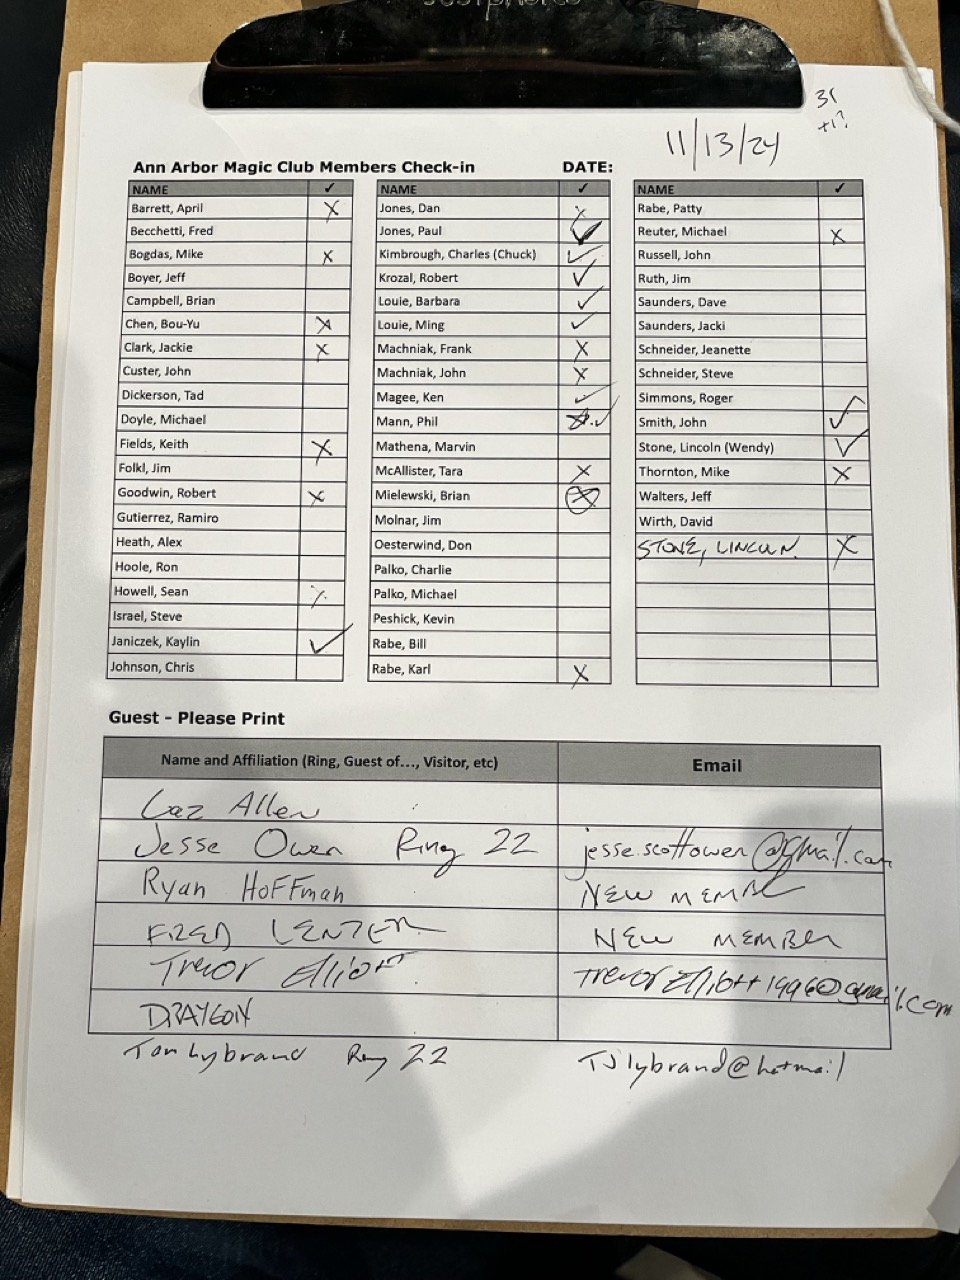 31
+1?
11/13/24
Ann Arbor Magic Club Members Check-in DATE:
NAME ✓
Barrett, April X
Becchetti, Fred
Bogdas, Mike X
Boyer, Jeff
Campbell, Brian
Chen, Bou-Yu X
Clark, Jackie X
Custer, John
Dickerson, Tad
Doyle, Michael
Fields, Keith X
Folkl, Jim
Goodwin, Robert X
Gutierrez, Ramiro
Heath, Alex
Hoole, Ron
Howell, Sean X
Israel, Steve
Janiczek, Kaylin ✓
Johnson, Chris
NAME ✓
Jones, Dan X
Jones, Paul ✓
Kimbrough, Charles (Chuck) ✓
Krozal, Robert ✓
Louie, Barbara ✓
Louie, Ming ✓
Machniak, Frank X
Machniak, John X
Magee, Ken ✓
Mann, Phil ✓
Mathena, Marvin
McAllister, Tara X
Mielewski, Brian X
Molnar, Jim
Oesterwind, Don
Palko, Charlie
Palko, Michael
Peshick, Kevin
Rabe, Bill
Rabe, Karl X
NAME ✓
Rabe, Patty
Reuter, Michael X
Russell, John
Ruth, Jim
Saunders, Dave
Saunders, Jacki
Schneider, Jeanette
Schneider, Steve
Simmons, Roger
Smith, John ✓
Stone, Lincoln (Wendy) ✓
Thornton, Mike X
Walters, Jeff
Wirth, David
STONE, LINCOLN. X
Guest - Please Print
Name and Affiliation (Ring, Guest of..., Visitor, etc) Email
Allen
Jesse Owen Ring 22 jesse.scottowen@gmail.com
Ryan HoFFman NEW MEMBER
FRED LENZER NEW MEMBER
Trevor Elliott TrevorElliott1996@gmail.com
DRAYGON
Tom Lybrand Ring 22 TJlybrand@hotmail